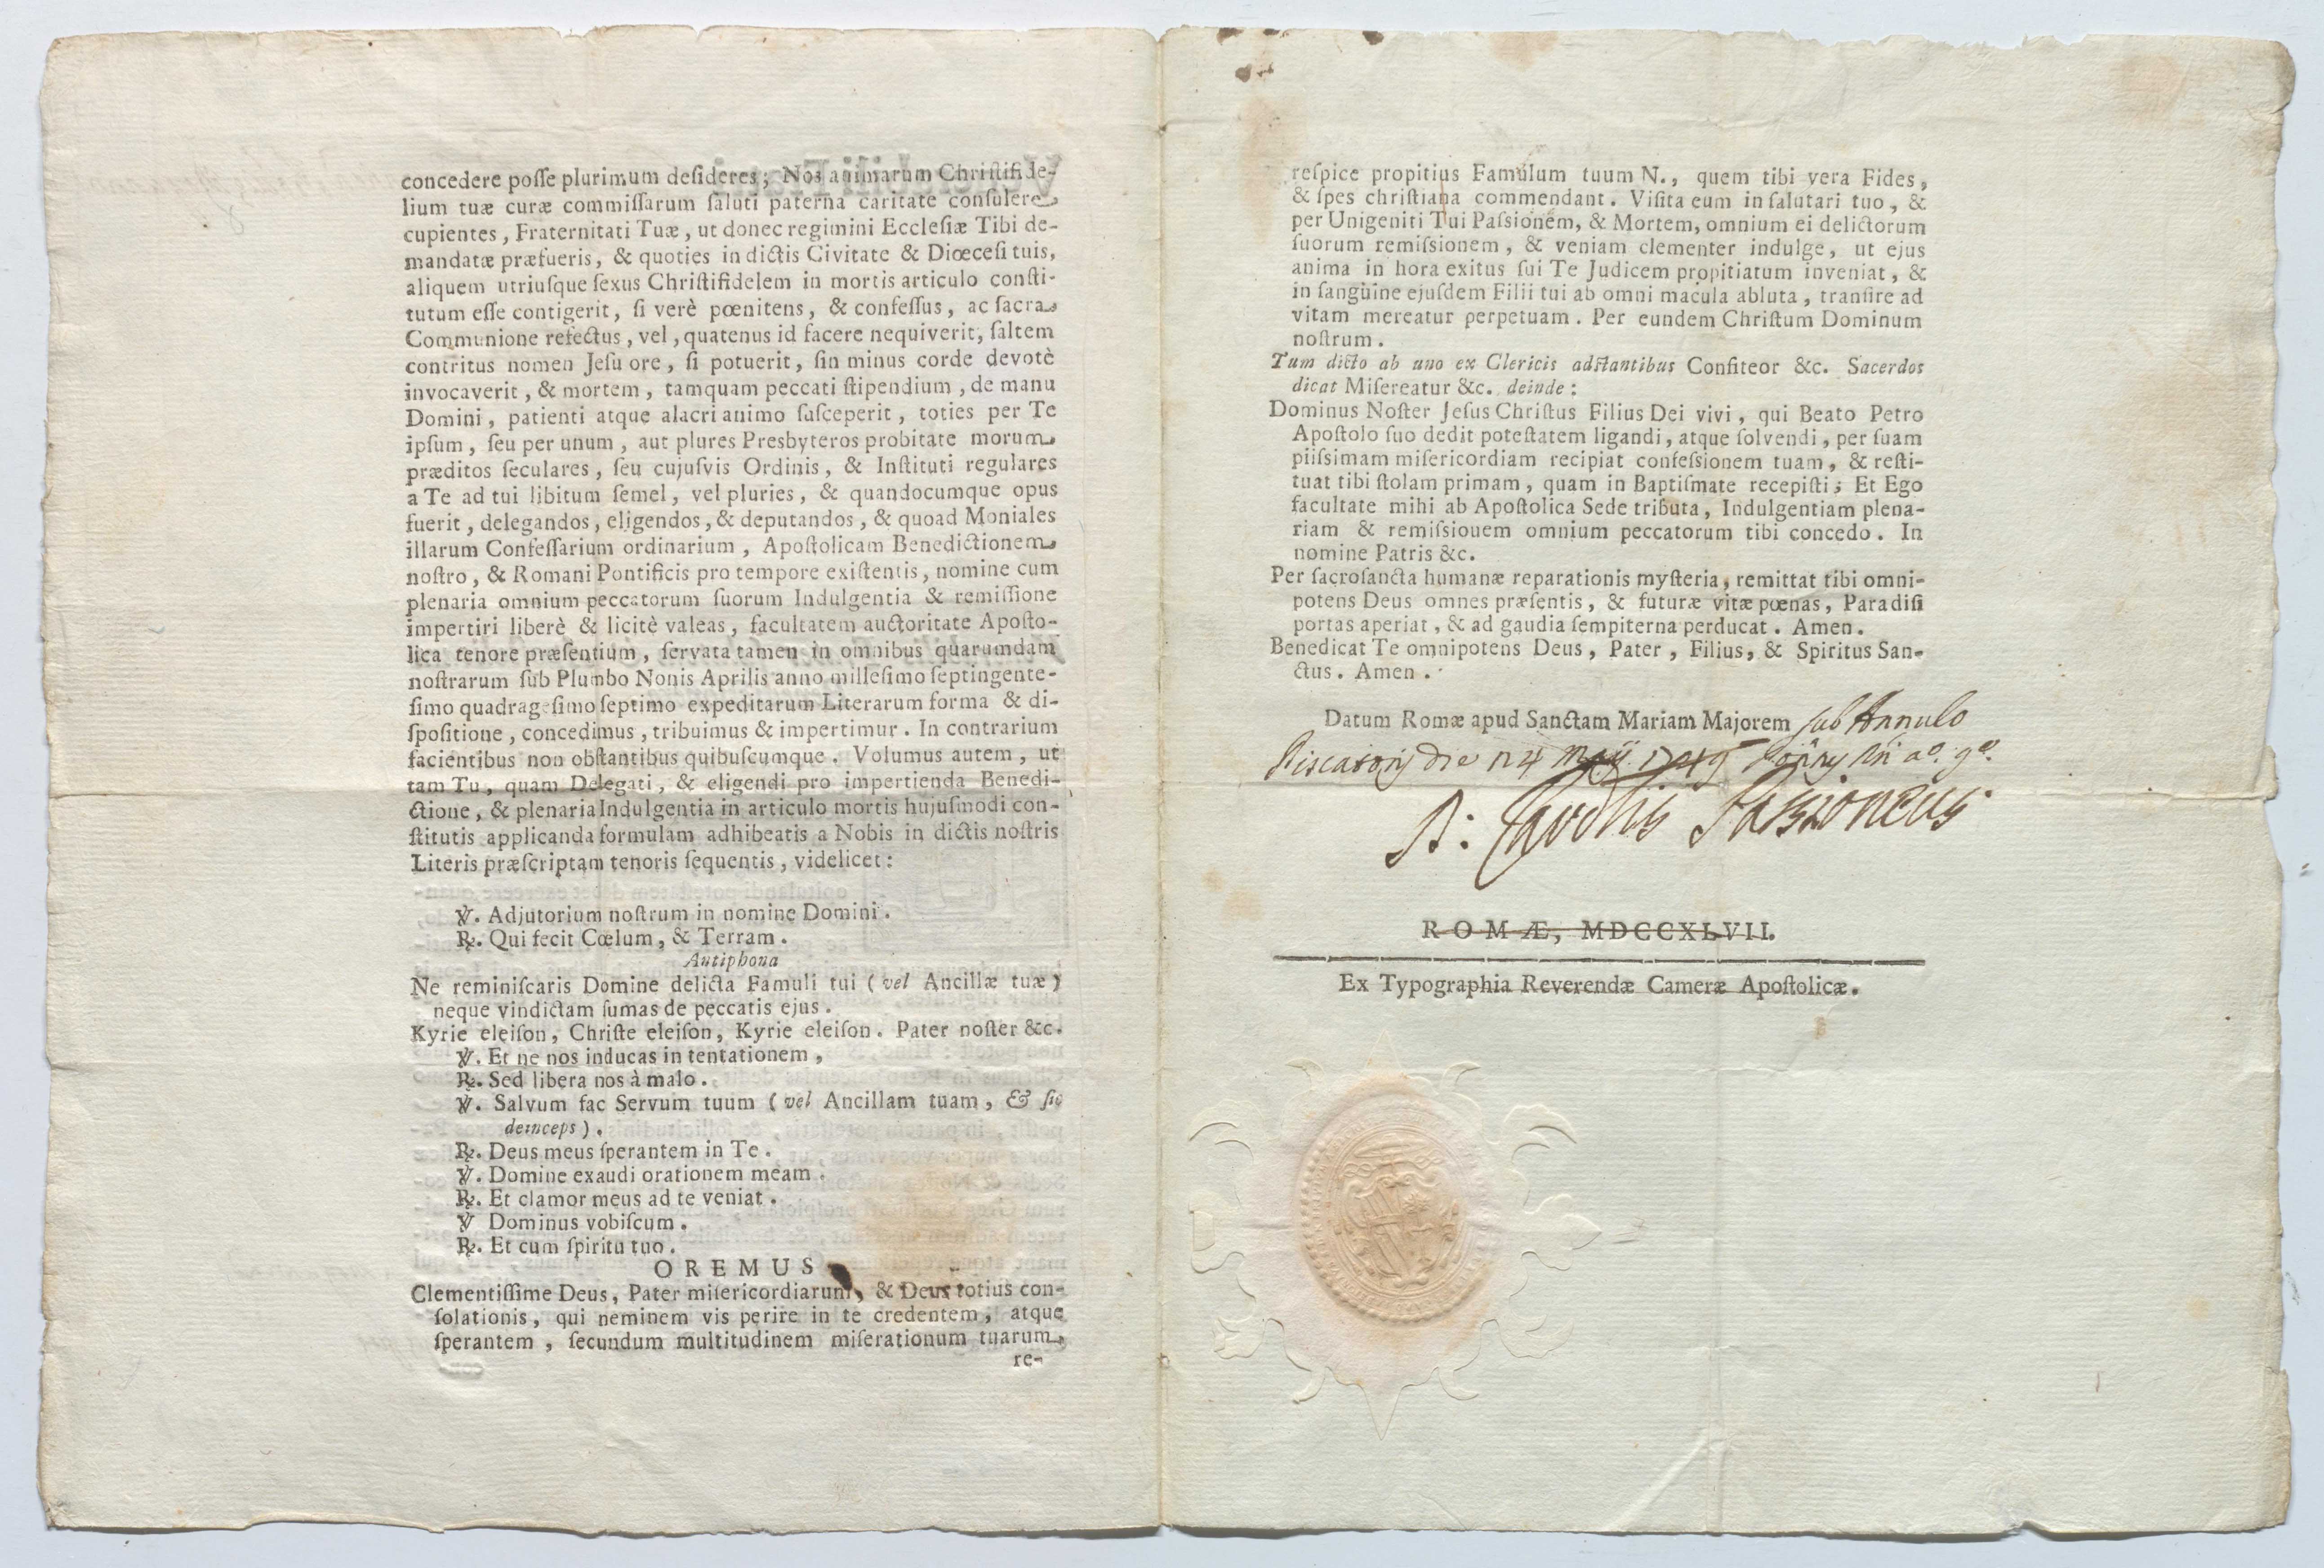 concedere posse plurimum desideres; Nos animarum Christifide-
lium tuæ curæ commissarum saluti paterna caritate consulere
cupientes, Fraternitati Tuæ, ut donec regimini Ecclesiæ Tibi de-
mandatæ præfueris, & quoties in dictis Civitate & Diœcesi tuis,
aliquem utriusque sexus Christifidelem in mortis articulo consti-
tutum esse contigerit, si verè pœnitens, & confessus, ac sacra
Communione refectus, vel, quatenus id facere nequiverit, saltem
contritus nomen Jesu ore, si potuerit, sin minus corde devotè
invocaverit, & mortem, tamquam peccati stipendium, de manu
Domini, patienti atque alacri animo susceperit, toties per Te
ipsum, seu per unum, aut plures Presbyteros probitate morum
præditos seculares, seu cujusvis Ordinis, & Instituti regulares
a Te ad tui libitum semel, vel pluries, & quandocumque opus
fuerit, delegandos, eligendos, & deputandos, & quoad Moniales
illarum Confessarium ordinarium, Apostolicam Benedictionem
nostro, & Romani Pontificis pro tempore existentis, nomine cum
plenaria omnium peccatorum suorum Indulgentia & remissione
impertiri liberè & licitè valeas, facultatem auctoritate Aposto-
lica tenore præsentium, servata tamen in omnibus quarumdam
nostrarum sub Plumbo Nonis Aprilis anno millesimo septingente-
simo quadragesimo septimo expeditarum Literarum forma & di-
spositione, concedimus, tribuimus & impertimur. In contrarium
facientibus non obstantibus quibuscumque. Volumus autem, ut
tam Tu, quam Delegati, & eligendi pro impertienda Benedi-
ctione, & plenaria Indulgentia in articulo mortis hujusmodi con-
stitutis applicanda formulam adhibeatis a Nobis in dictis nostris
Literis præscriptam tenoris sequentis, videlicet:
℣. Adjutorium nostrum in nomine Domini.
℟. Qui fecit Cœlum, & Terram.
Antiphona
Ne reminiscaris Domine delicta Famuli tui (vel Ancillæ tuæ)
neque vindictam sumas de peccatis ejus.
Kyrie eleison, Christe eleison, Kyrie eleison. Pater noster &c.
℣. Et ne nos inducas in tentationem,
℟. Sed libera nos à malo.
℣. Salvum fac Servum tuum (vel Ancillam tuam, & sic
deinceps).
℟. Deus meus sperantem in Te.
℣. Domine exaudi orationem meam.
℟. Et clamor meus ad te veniat.
℣ Dominus vobiscum.
℟. Et cum spiritu tuo.
OREMUS
Clementissime Deus, Pater misericordiarum, & Deus totius con-
solationis, qui neminem vis perire in te credentem, atque
sperantem, secundum multitudinem miserationum tuarum
re-
respice propitius Famulum tuum N., quem tibi vera Fides,
& spes christiana commendant. Visita eum in salutari tuo, &
per Unigeniti Tui Passionem, & Mortem, omnium ei delictorum
suorum remissionem, & veniam clementer indulge, ut ejus
anima in hora exitus sui Te Judicem propitiatum inveniat, &
in sanguine ejusdem Filii tui ab omni macula abluta, transire ad
vitam mereatur perpetuam. Per eundem Christum Dominum
nostrum.
Tum dicto ab uno ex Clericis adstantibus Confiteor &c. Sacerdos
dicat Misereatur &c. deinde:
Dominus Noster Jesus Christus Filius Dei vivi, qui Beato Petro
Apostolo suo dedit potestatem ligandi, atque solvendi, per suam
piissimam misericordiam recipiat confessionem tuam, & resti-
tuat tibi stolam primam, quam in Baptismate recepisti; Et Ego
facultate mihi ab Apostolica Sede tributa, Indulgentiam plena-
riam & remissiouem omnium peccatorum tibi concedo. In
nomine Patris &c.
Per sacrosancta humanæ reparationis mysteria, remittat tibi omni-
potens Deus omnes præsentis, & futuræ vitæ pœnas, Paradisi
portas aperiat, & ad gaudia sempiterna perducat. Amen.
Benedicat Te omnipotens Deus, Pater, Filius, & Spiritus San-
ctus. Amen.
Datum Romæ apud Sanctam Mariam Majorem sub Annulo
Piscatoris die 14 Maij 1749
Passioneus
ROMÆ, MDCCXLVII.
Ex Typographia Reverendæ Cameræ Apostolicæ.